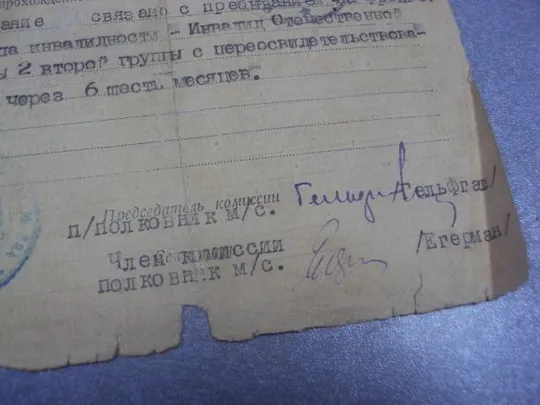 ание связано с пребыванием
инвалидности - Инвалид Отечественной
ы 2 второй группы с переосвидетельствова-
через 6 шесть месяцев.
Председатель комиссии
п/полковник м/с. /Гельфган/
Член комиссии
полковник м/с. /Егерман/